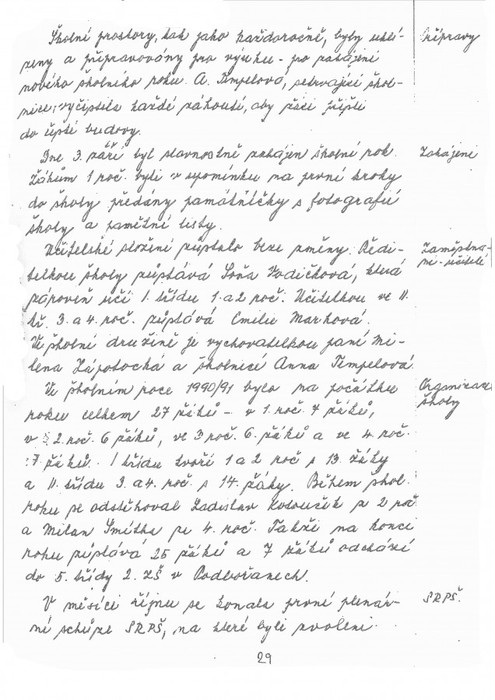 Školní prostory, tak jako každoročně, byly uklí- Přípravy
zeny a připravovány pro výuku - po zahájení
nového školního roku. A. Tempelová, setrvající škol-
nice, vyčistila každé zákoutí, aby žáci přišli
do čisté budovy.
Dne 3. září byl slavnostně zahájen školní rok. Zahájení
Žákům 1 roč. byli v upomínku na první kroky
do školy předány památníčky s fotografií
školy a pamětní listy.
Učitelské složení zůstalo beze změny. Ředi- Zaměstna-
telkou školy zůstává Soňa Vodičková, která ni-učitelé
zároveň učí 1. třídu 1. a 2 roč. Učitelkou ve II.
tř. 3. a 4. roč. zůstává Emilie Marková.
Ve školní družině je vychovatelkou paní Mi-
lena Zápotocká a školnicí Anna Tempelová
Ve školním roce 1990/91 bylo na počátku Organizace
roku celkem 27 žáků - v 1. roč. 7 žáků, školy
v 2. roč. 6 žáků, ve 3 roč. 6. žáků a ve 4. roč.
7 žáků. I třídu tvoří 1 a 2 roč s 13. žáky
a II. třídu 3. a 4. roč. s 14. žáky. Během škol.
roku se odstěhoval Ladislav Kotouček z 2 roč
a Milan Smítka ze 4. roč. Takže na konci
roku zůstává 25 žáků a 7 žáků odchází
do 5. třídy 2. ZŠ v Podbořanech.
V měsíci říjnu se konala první plenár- SRPŠ.
ní schůze SRPŠ, na které byli zvoleni
29